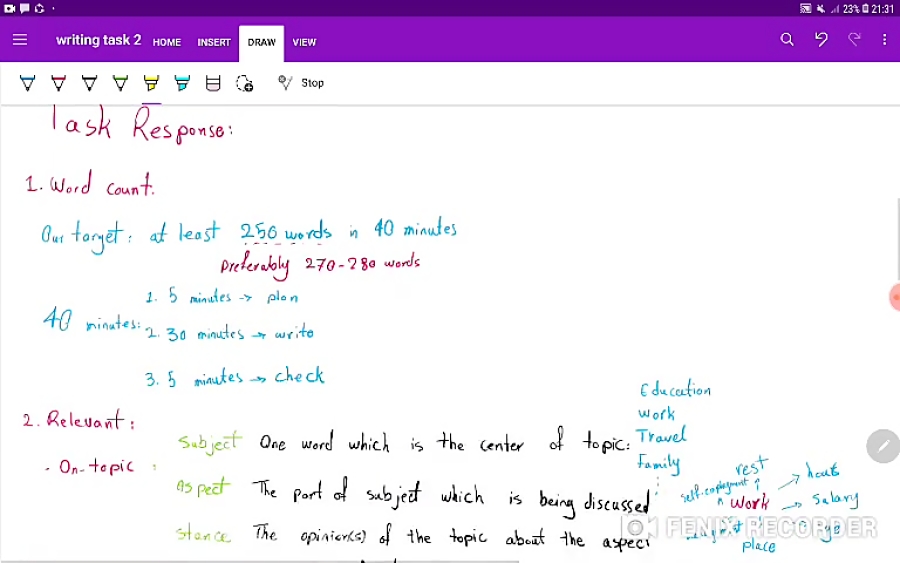 23% 21:31
writing task 2 HOME INSERT DRAW VIEW
Stop
Task Response:
1. Word count.
Our target: at least 250 words in 40 minutes
preferably 270-280 words
40 minutes:
1. 5 minutes → plan
2. 30 minutes → write
3. 5 minutes → check
2. Relevant:
- On-topic :
Subject One word which is the center of topic:
Education
Work
Travel
Family
Aspect The part of subject which is being discussed
Stance The opinion(s) of the topic about the aspect
rest
work
salary
place
FENIX RECORDER